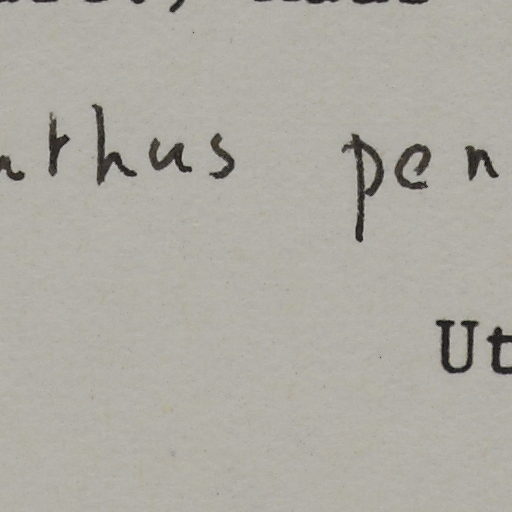 nthus pen
Ut